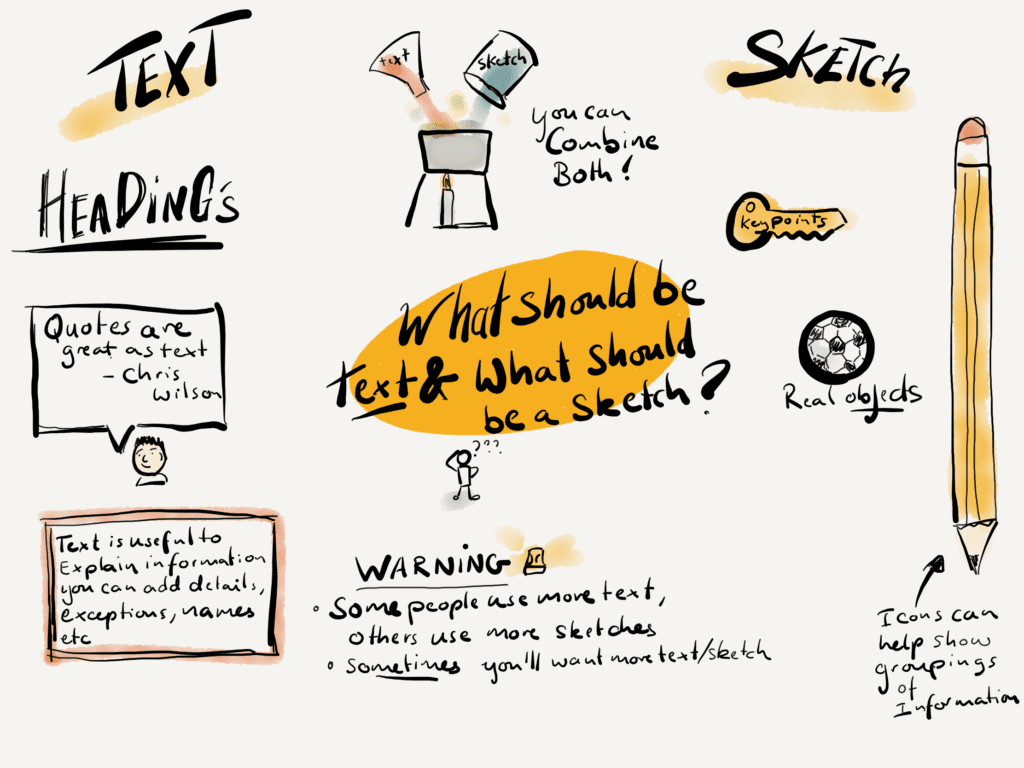 TEXT
text
sketch
you can
Combine
Both!
SKETCh
HEADiNG's
key points
What should be
text & What should
be a sketch?
Quotes are
great as text
- Chris
Wilson
Real objects
???
Text is useful to
Explain information
you can add details,
exceptions, names
etc
WARNING
• Some people use more text,
others use more sketches
• sometimes you'll want more text/sketch
Icons can
help show
groupings
of
Information